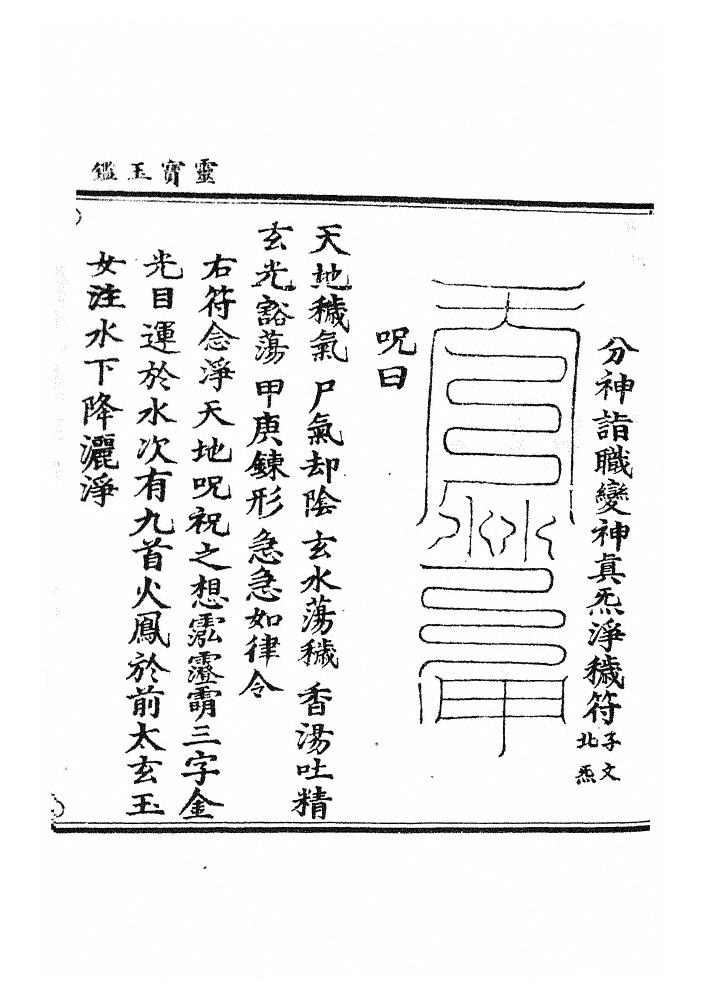 靈寶玉鑑
分神詣職變神眞炁淨穢符
子文
北炁
呪曰
天地穢氣 尸氣却陰 玄水蕩穢 香湯吐精
玄光豁蕩 甲庚鍊形 急急如律令
右符念淨天地呪祝之想霐霳霌三字金
光目運於水次有九首火鳳於前太玄玉
女注水下降灑淨